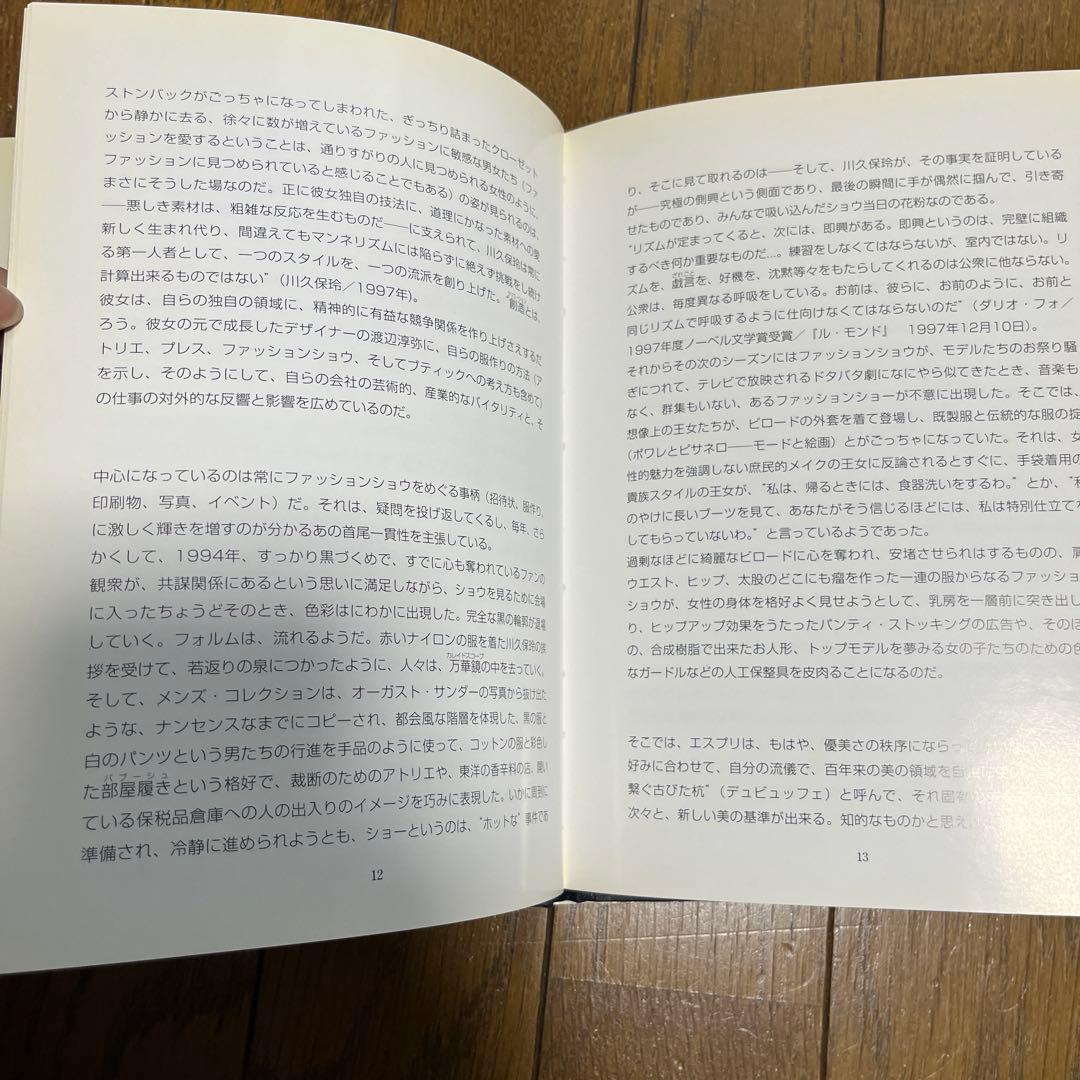 ストンバックがごっちゃになってしまわれた、ぎっちり詰まったクローゼット
から静かに去る、徐々に数が増えているファッションに敏感な男女たち（ファ
ッションを愛するということは、通りすがりの人に見つめられる女性のように、
ファッションに見つめられていると感じることでもある）の姿が見られるのは、
まさにそうした場なのだ。正に彼女独自の技法に、道理にかなった素材への愛
――悪しき素材は、粗雑な反応を生むものだ――に支えられて、川久保玲は常に
新しく生まれ代り、間違えてもマンネリズムには陥らずに絶えず挑戦をし続け
る第一人者として、一つのスタイルを、一つの流派を創り上げた。“創造とは、
計算出来るものではない”（川久保玲／1997年）。
彼女は、自らの独自の領域に、精神的に有益な競争関係を作り上げさえするだ
ろう。彼女の元で成長したデザイナーの渡辺淳弥に、自らの服作りの方法（ア
トリエ、プレス、ファッションショウ、そしてブティックへの考え方も含めて）
を示し、そのようにして、自らの会社の芸術的、産業的なバイタリティと、そ
の仕事の対外的な反響と影響を広めているのだ。
中心になっているのは常にファッションショウをめぐる事柄（招待状、服作り、
印刷物、写真、イベント）だ。それは、疑問を投げ返してくるし、毎年、さら
に激しく輝きを増すのが分かるあの首尾一貫性を主張している。
かくして、1994年、すっかり黒づくめで、すでに心も奪われているファンの
観衆が、共謀関係にあるという思いに満足しながら、ショウを見るために会場
に入ったちょうどそのとき、色彩はにわかに出現した。完全な黒の輪郭が退場
していく。フォルムは、流れるようだ。赤いナイロンの服を着た川久保玲の挨
拶を受けて、若返りの泉につかったように、人々は、万華鏡の中を去っていく。
カレイドスコープ
そして、メンズ・コレクションは、オーガスト・サンダーの写真から抜け出た
ような、ナンセンスなまでにコピーされ、都会風な階層を体現した、黒の服と
白のパンツという男たちの行進を手品のように使って、コットンの服と彩色し
た部屋履きという格好で、裁断のためのアトリエや、東洋の香辛料の店、開い
バブーシュ
ている保税品倉庫への人の出入りのイメージを巧みに表現した。いかに周到に
準備され、冷静に進められようとも、ショーというのは、“ホットな”事件であ
12
り、そこに見て取れるのは――そして、川久保玲が、その事実を証明している
が――究極の側興という側面であり、最後の瞬間に手が偶然に掴んで、引き寄
せたものであり、みんなで吸い込んだショウ当日の花粉なのである。
“リズムが定まってくると、次には、即興がある。即興というのは、完璧に組織
するべき何か重要なものだ...。練習をしなくてはならないが、室内ではない。リ
ズムを、戯言を、好機を、沈黙等々をもたらしてくれるのは公衆に他ならない。
ざれごと
公衆は、毎度異なる呼吸をしている。お前は、彼らに、お前のように、お前と
同じリズムで呼吸するように仕向けなくてはならないのだ”（ダリオ・フォ／
1997年度ノーベル文学賞受賞／『ル・モンド』　1997年12月10日）。
それからその次のシーズンにはファッションショウが、モデルたちのお祭り騒
ぎにつれて、テレビで放映されるドタバタ劇になにやら似てきたとき、音楽も
なく、群集もいない、あるファッションショーが不意に出現した。そこでは、
想像上の王女たちが、ビロードの外套を着て登場し、既製服と伝統的な服の掟
（ポワレとピサネロ――モードと絵画）とがごっちゃになっていた。それは、女
性的魅力を強調しない庶民的メイクの王女に反論されるとすぐに、手袋着用の
貴族スタイルの王女が、“私は、帰るときには、食器洗いをするわ。”とか、“私
のやけに長いブーツを見て、あなたがそう信じるほどには、私は特別仕立て
してもらっていないわ。”と言っているようであった。
過剰なほどに綺麗なビロードに心を奪われ、安堵させられはするものの、肩
ウエスト、ヒップ、太股のどこにも瘤を作った一連の服からなるファッショ
ショウが、女性の身体を格好よく見せようとして、乳房を一層前に突き出し
り、ヒップアップ効果をうたったパンティ・ストッキングの広告や、そのほ
の、合成樹脂で出来たお人形、トップモデルを夢みる女の子たちのための色
なガードルなどの人工保整具を皮肉することになるのだ。
そこでは、エスプリは、もはや、優美さの秩序にならっ
好みに合わせて、自分の流儀で、百年来の美の領域を
繋ぐ古びた杭”（デュビュッフェ）と呼んで、それ
次々と、新しい美の基準が出来る。知的なものかと思え
13